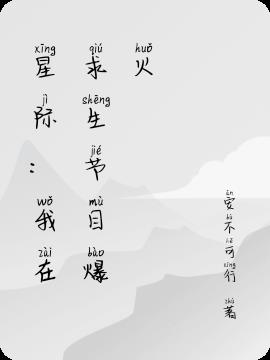 xīng jì wǒ zài
星际：我在
qiú shēng jié mù bào
求生节目爆
huǒ
火
ān bù kě xíng zhù
安不可行 著